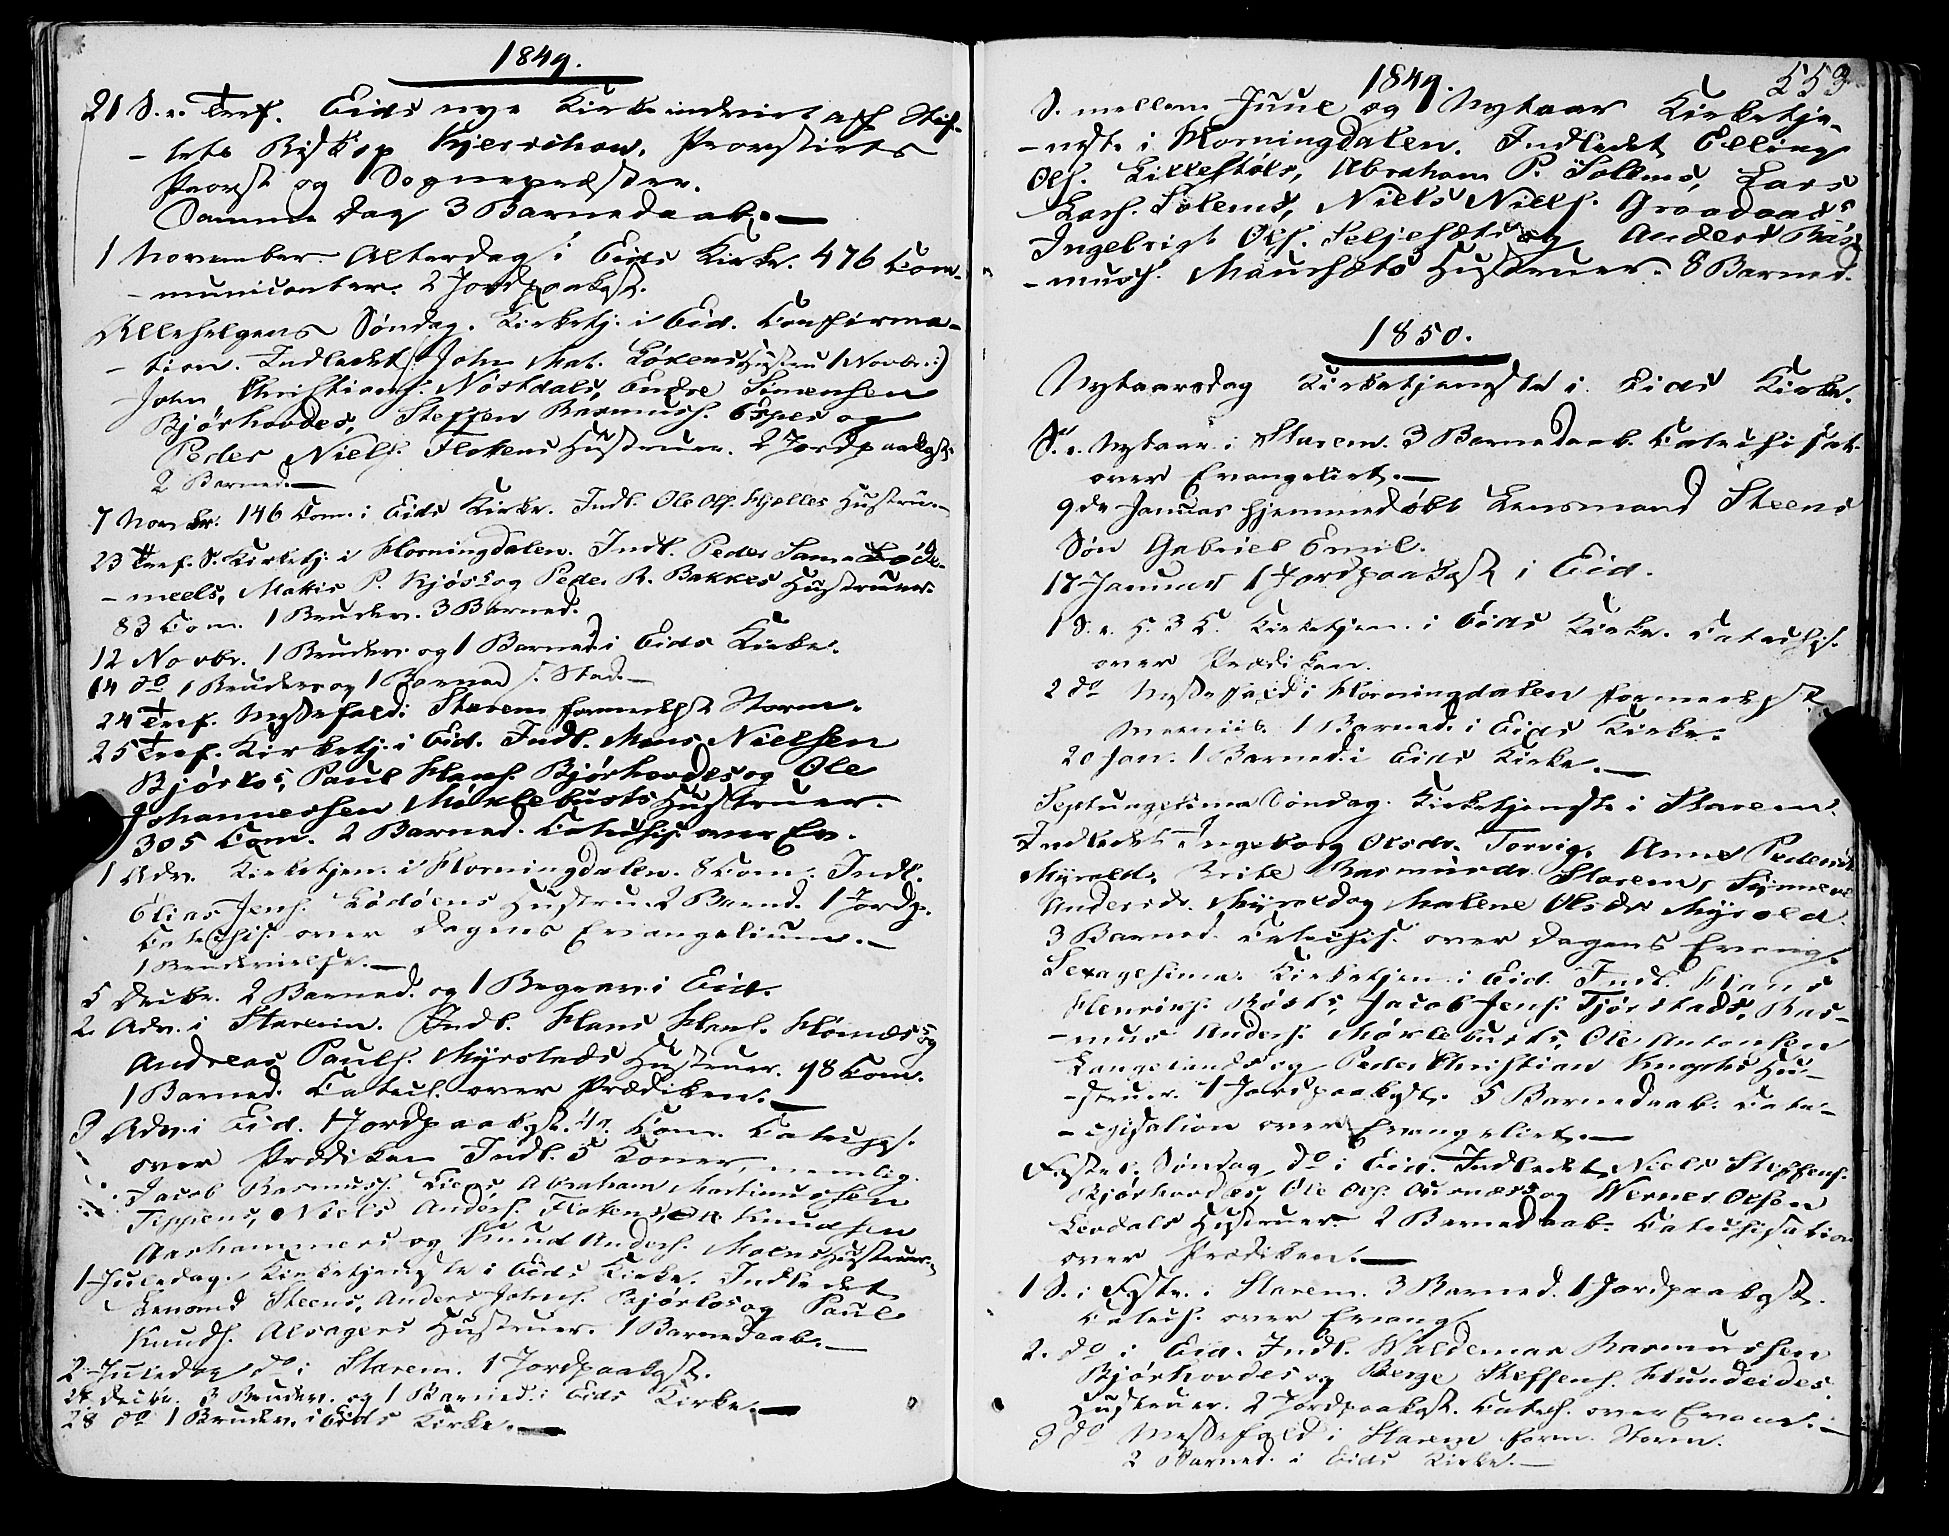 1849.
21 S. e. Tref. Eids nye Kirke indviet af Stif-
-tets Biskop Kjerschow, Provstiets
Provst og 1 Sognepræster.
Samme Dag 3 Barnedaab.—
1 November. Alterdag i Eids Kirke. 476 Com-
-municanter. 2 Jordpaakst.
Allehelgens Søndag. Kirketj. i Eid. Confirma-
-tion. Indledet (: John Mat. Løkens Hustru 1 Novbr. :)
John Christians. Nøstdals, Endre Simensen
Bjørhovdes, Steffen Rasmuss. Espes og
Peder Niels. Flokens Hustruer. 2 Jordpaakst.
2 Barned.—
7 Novbr. 146 Com. i Eids Kirke. Indl. Ole Ols. Hjelles Hustru.—
23 Tref. S. Kirketj. i Horningdalen. Indl. Peder
-meels, Mattis P. Kjøs og Peder R. Bakkes Hustruer.
83 Com. 1 Brudev. 3 Barned.
12 Novbr. 1 Brudev. og 1 Barned. i Eids Kirke.
14 do 1 Brudev. og 1 Barned. i Stad.—
24 Tref. Messefald i Starem formedelst Storm.
25 Tref. Kirketj. i Eid. Indl. Mons Nielsen
Bjørlos, Paul Hans. Bjørhovdes og Ole
Johannessen Myklebusts Hustruer.
305 Com. 2 Barned. Catechis. over Ev.
1 Adv. Kirketjen. i Horningdalen. 8 Com. Indl.
Elias Jens. Lødøens Hustru. 2 Barned. 1 Jordp.
Catechis. over Dagens Evangelium.—
1 Brudevielse.—
5 Decbr. 2 Barned. og 1 Begrav. i Eid.
2 Adv. i Starem. Indl. Hans Hans. Hornæs og
Andreas Pauls. Myrolds Hustruer. 98 Com.
1 Barned. Catech. over Prædiken.—
3 Adv. i Eid. 1 Jordpaakst. 42 Com. Catechis.
over Prædiken Indl. 5 Koner, nemlig
Jacob Rasmuss. Lies, Abraham Martinussen
Tippens, Niels Anders. Flokens, Knudsen
Aarhammers og Knud Anders. Moens Hustruer.
1 Juledag. Kirketjeneste i Eids Kirke. Indledet
Lensmand Steens, Anders Johns. Bjørlos og Paul
Knuds. Alsagers Hustruer. 1 Barnedaab.—
2 Juledag do i Starem. 1 Jordpaakst.
27 Decbr. 3 Brudev. og 1 Barned. i Eids Kirke.—
28 do 1 Brudev. i Eids Kirke.—
553
1849.
S. mellem Juul og Nytaar Kirketje-
-neste i Horningdalen. Indledet Elling
Ols. Lillestøls, Abraham P. Solems, Lars
Lars. Solems, Niels Niels. Graadaas,
Ingebrigt Ols. Seljesæts og Anders Ras-
-muss. Maursæts Hustruer. 8 Barned.
1850.
Nytaarsdag Kirketjeneste i Eids Kirke.
S. e. Nytaar i Starem. 3 Barnedaab. Catechisat.
over Evangeliet.—
9de Januar hjemmedøbt Lensmand Steens
Søn Gabriel Emil.
17 Januar 1 Jordpaakst. i Eid.
1 S. e. H. 3 K. Kirketjen. i Eids Kirke. Catechis.
over Prædiken.
2 do Messefald i Horningdalen formedelst
1 Barned. i Eids Kirke.
20 Jan. 1 Barned. i Eids Kirke.—
Septuagesima Søndag. Kirketjeneste i Starem.
Indledet Ingeborg Olsdr. Torvig, Anne Pedersdr.
Myrold, Brite Rasmusdr. Starem, Synneve
Andersdr. Myrold og Malene Olsdr. Myrold.
3 Barned. Catechis. over Dagens Evang.
Sexagesima. Kirketjen. i Eid. Indl. Hans
Henriks. Røsets, Jacob Jens. Tjørstads, Ras-
-mus Anders. Myklebusts, Ole Antonsen
Langelands og Peder Christian Hu-
-struer. 1 Jordpaakst. 5 Barnedaab. Cate-
-chisation over Evangeliet.—
Faste. Søndag do i Eid. Indledet Niels Steffens.
Bjørhovdes, Ole Ols. og Werner Olsen
Levdals Hustruer. 2 Barnedaab. Catechisation
over Prædiken.—
1 S. i Faste i Starem. 3 Barned. 1 Jordpaakst.
Catech. over Evang.
2. do i Eid. Indl. Waldemar Rasmussen
Bjørhovdes og Berge Steffens. Hundeides
Hustruer. 2 Jordpaakst. Catech. over Evang.—
3 do Messefald i Starem form. Storm.
2 Barned. i Eids Kirke.—